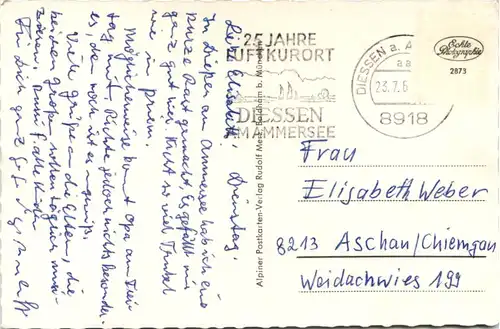 Liebe Elisabeth! Dienstag.
In Dießen am Ammersee hab ich eine
kurze Rast gemacht. Es gefällt mir
ganz gut hier. Nicht so viel Trubel
wie in Prien.
Möglicherweise kommt Opa am Frei-
tag mit. Richte jedoch nichts besonder-
es, denn noch ist er
Viele Grüße an die Eltern, die
beiden Großen sollen täglich
Für Dich ganz
25 JAHRE
LUFTKURORT
DIESSEN
AM AMMERSEE
DIESSEN a. A
23.7.6
8918
Echte
Photographie
2873
Alpiner Postkarten-Verlag Rudolf Baldham b. München
Frau
Elisabeth Weber
8213 Aschau/Chiemgau
Weidachwies 199